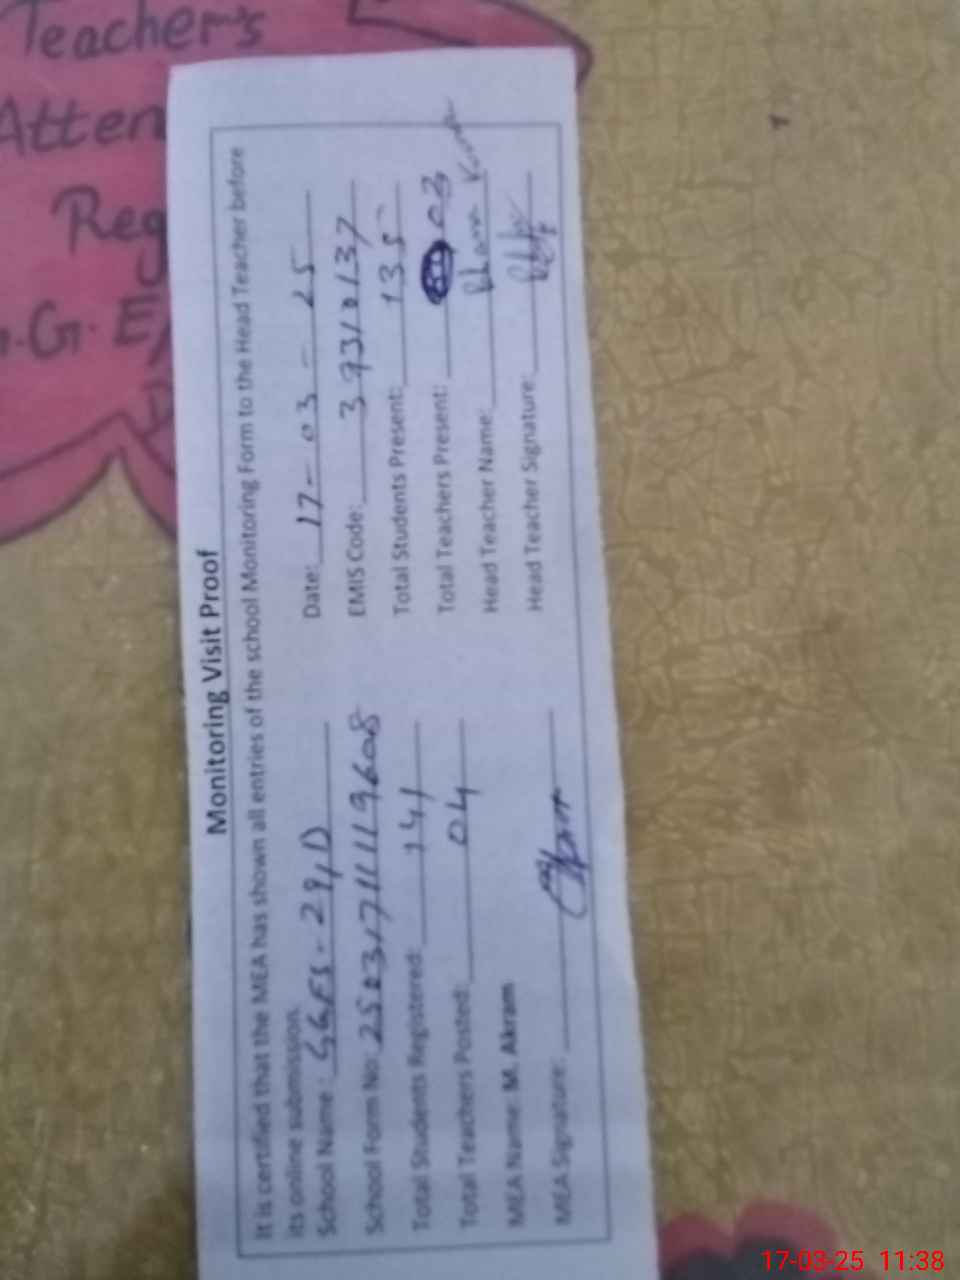 Teacher's
Atten
Reg
G. E/
Monitoring Visit Proof
It is certified that the MEA has shown all entries of the school Monitoring Form to the Head Teacher before
its online submission.
School Name: GGES-29/D Date: 17-03-25
School Form No: 25031711119608 EMIS Code: 39310137
Total Students Registered: 141 Total Students Present: 135
Total Teachers Posted: 04 Total Teachers Present: 03
MEA Name: M. Akram Head Teacher Name:
MEA Signature: Head Teacher Signature:
17-03-25 11:38